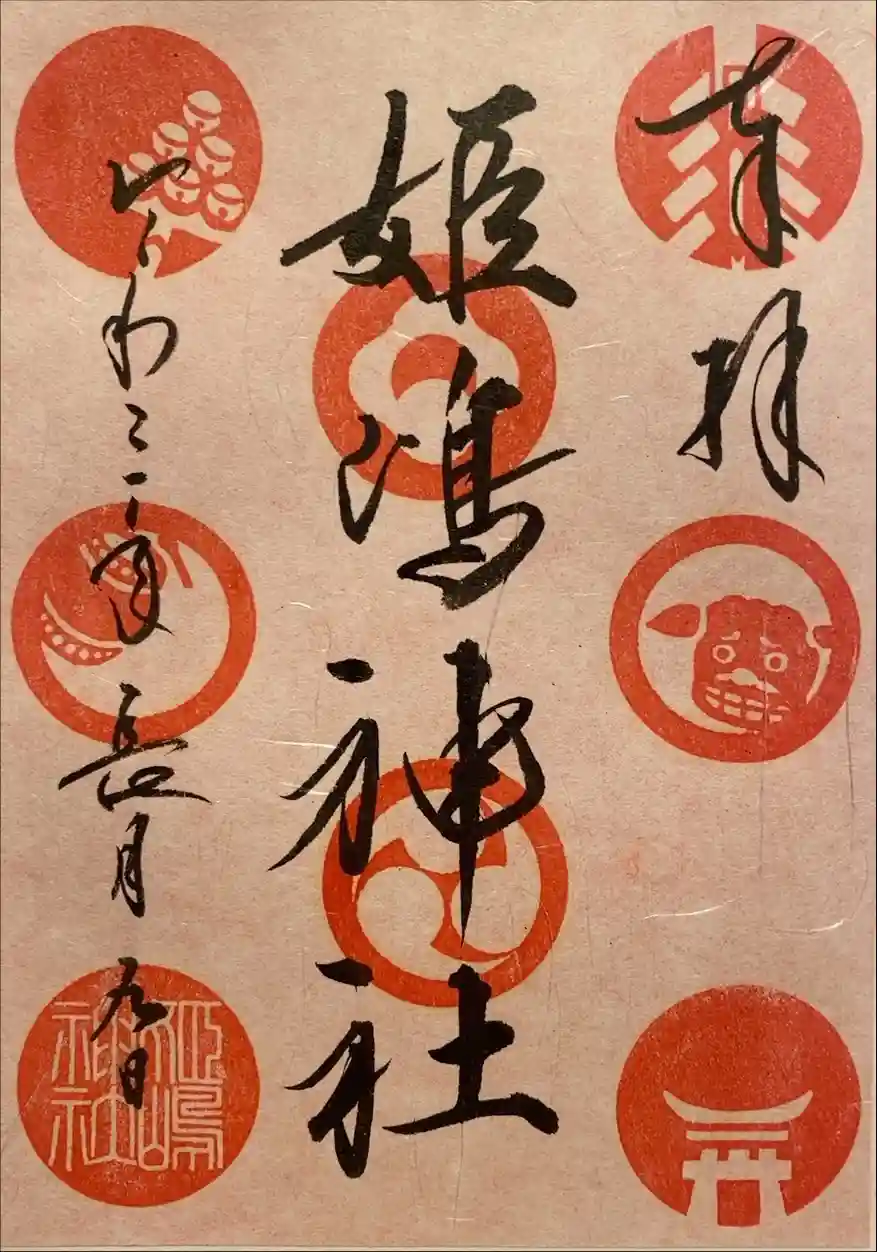 奉拝
姫嶋神社
令和三年長月九日
姫嶋
神社